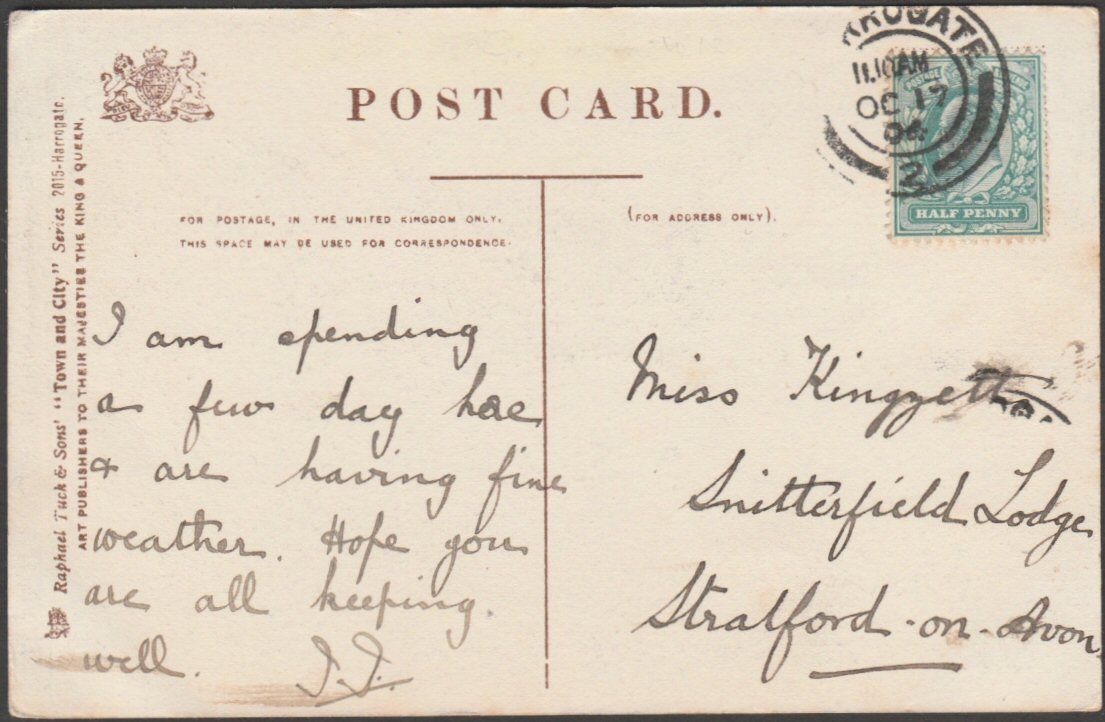 POST CARD.
FOR POSTAGE, IN THE UNITED KINGDOM ONLY,
THIS SPACE MAY BE USED FOR CORRESPONDENCE.
(FOR ADDRESS ONLY).
RROGATE
11.10AM
OC 17
04
2
HALF PENNY
POSTAGE
Raphael Tuck & Sons' "Town and City" Series 2015-Harrogate.
ART PUBLISHERS TO THEIR MAJESTIES THE KING & QUEEN.
I am spending
a few day here
& are having fine
weather. Hope you
are all keeping
well. J.J.
Miss Kingzett
Snitterfield Lodge
Stratford-on-Avon